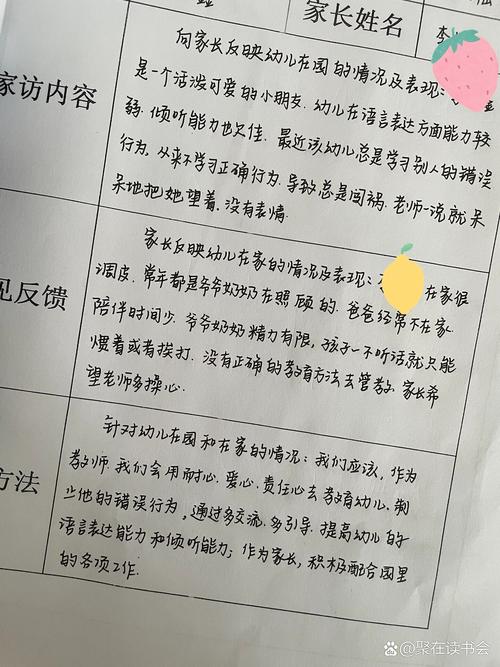 家长姓名
李
家访内容
向家长反映幼儿在园的情况及表现:
是一个活泼可爱的小朋友.幼儿在语言表达方面能力较
弱.倾听能力也欠佳.最近该幼儿总是学习别人的错误
行为.从来不学习正确行为.导致总是闯祸.老师一说就呆
呆地把她望着.没有表情.
见反馈
家长反映幼儿在家的情况及表现:在家很
调皮.常年都是爷爷奶奶在照顾的.爸爸经常不在家.
陪伴时间少.爷爷奶奶精力有限,孩子一不听话就只能
惯着或者挨打.没有正确的教育方法去管教.家长希
望老师多操心.
方法
针对幼儿在园和在家的情况:我们应该,作为
教师.我们会用耐心.爱心.责任心去教育幼儿.制
止他的错误行为,通过多交流.多引导.提高幼儿的
语言表达能力和倾听能力;作为家长,积极配合园里
的各项工作.
聚在读书会